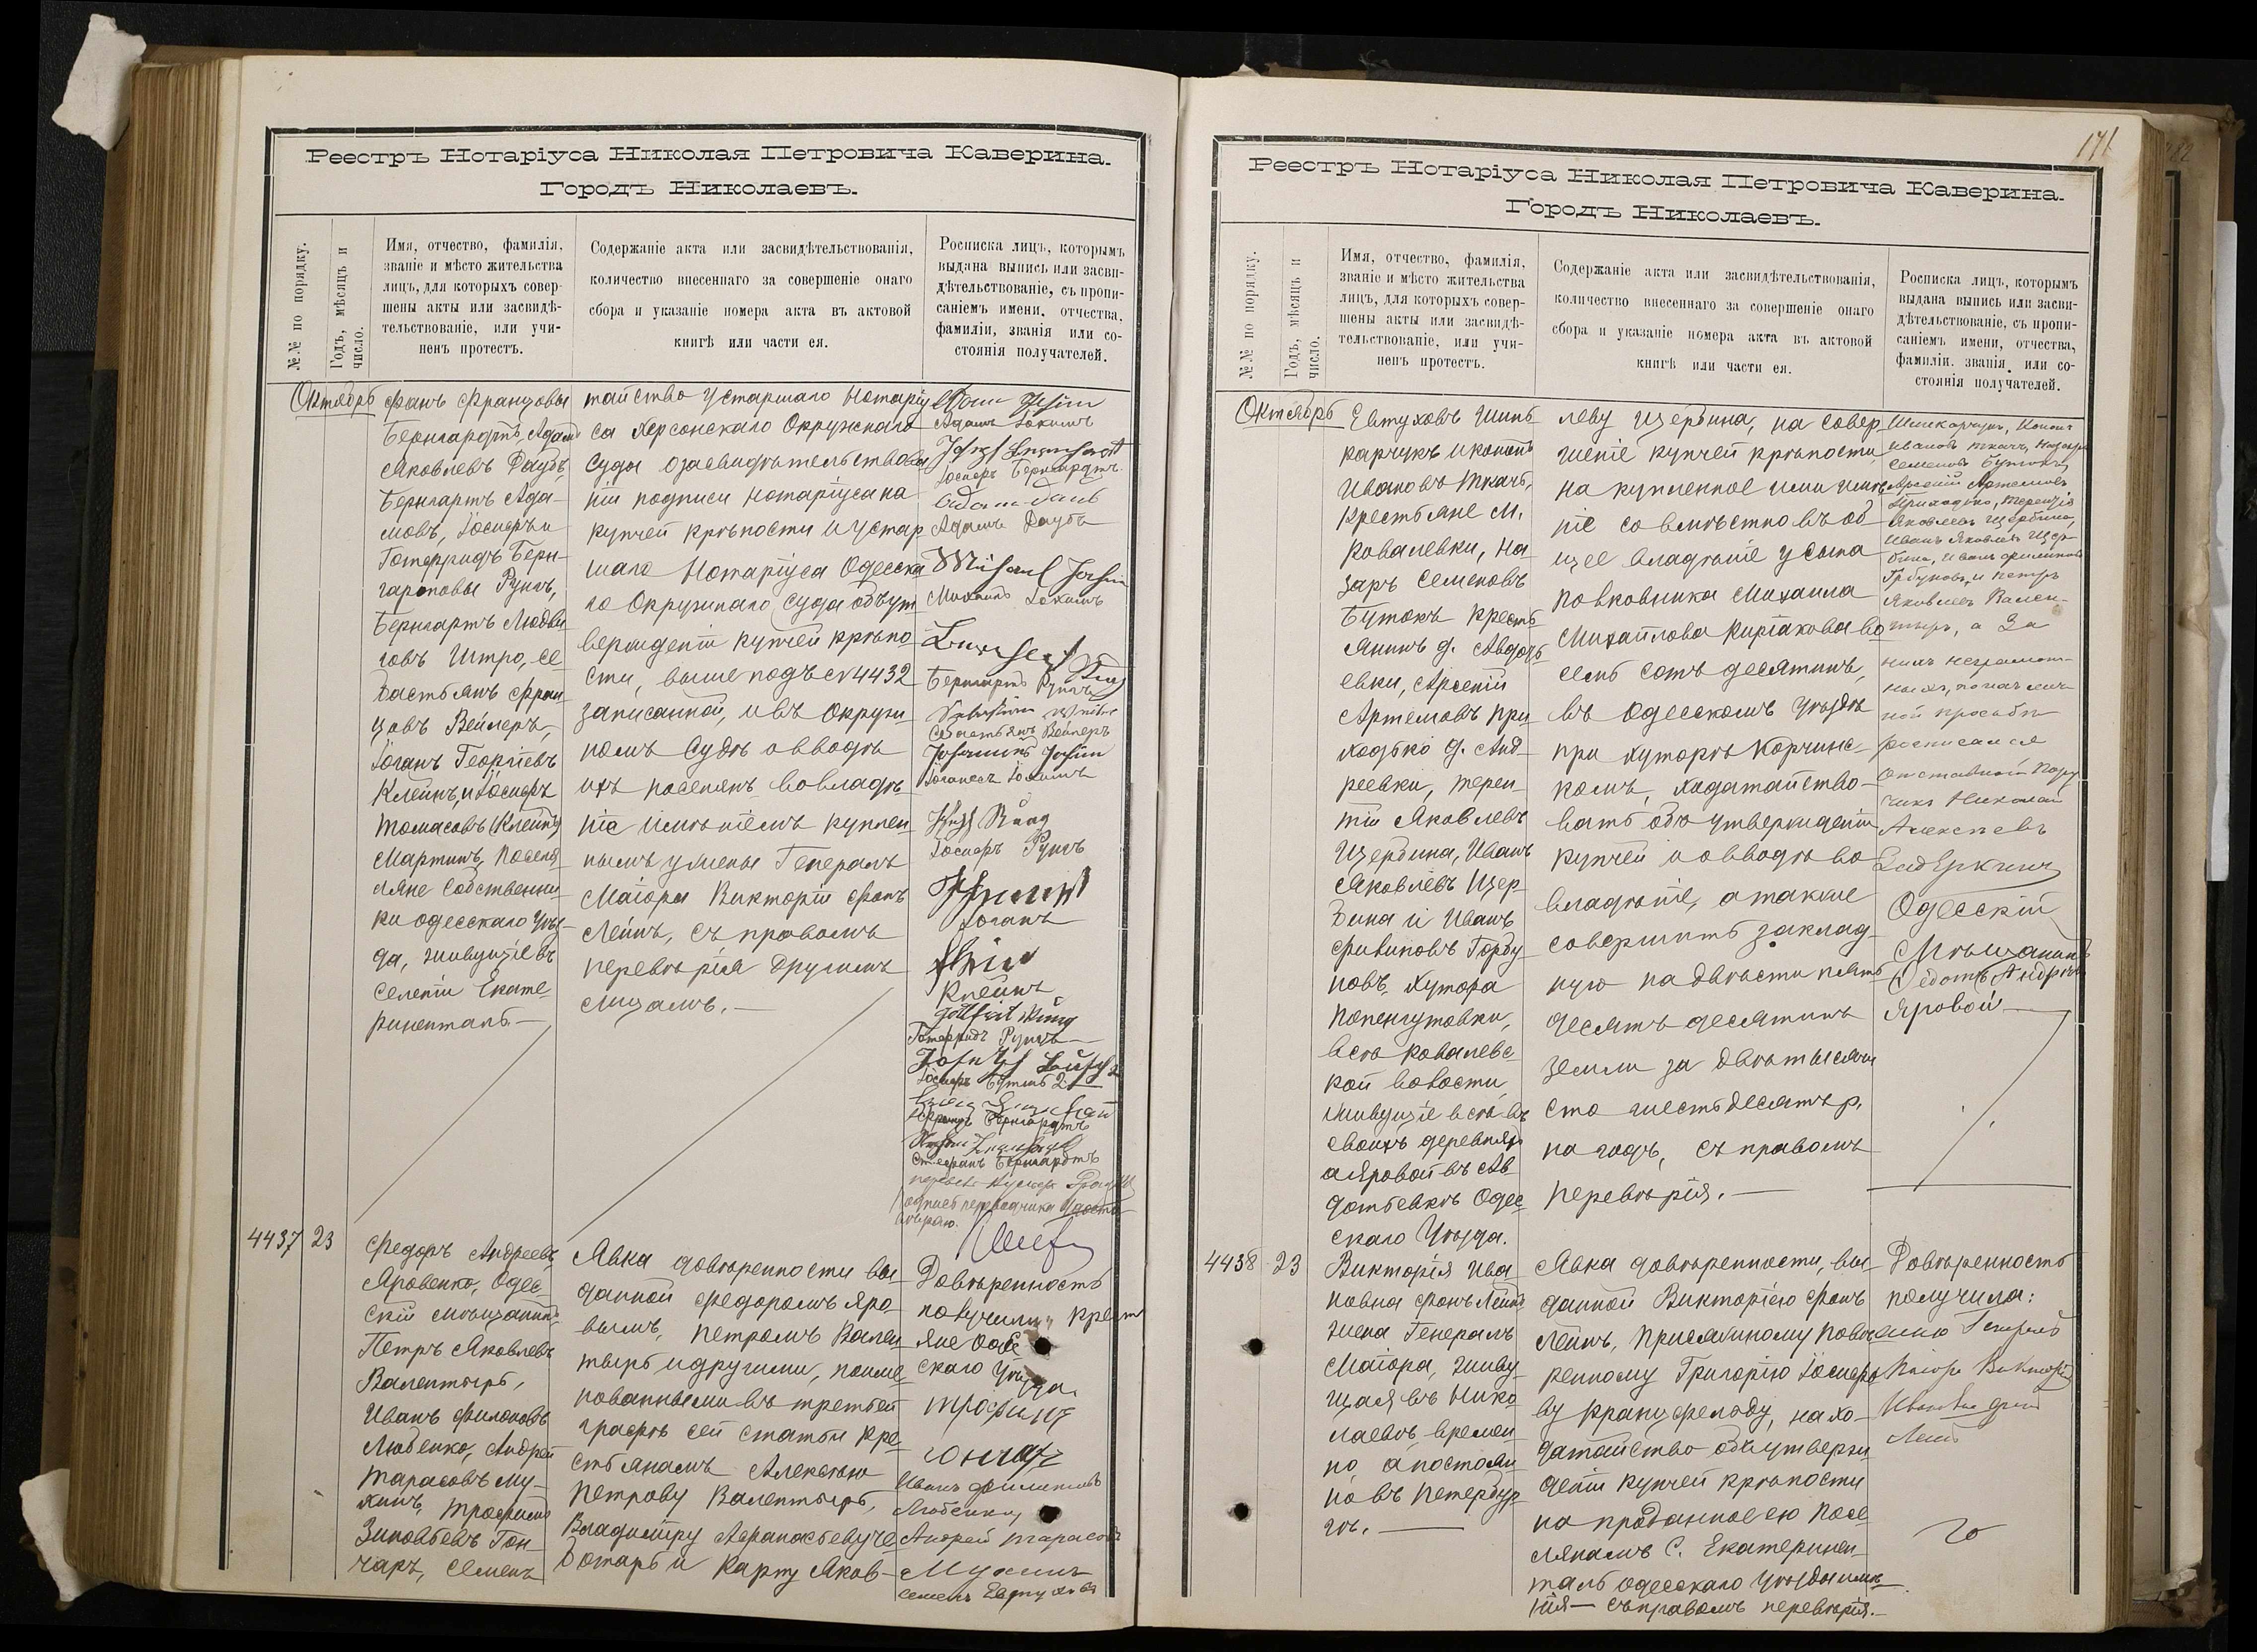 Реестръ Нотаріуса Николая Петровича Каверина.
Городъ Николаевъ.
№№ по порядку.
Годъ, мѣсяцъ и
число.
Имя, отчество, фамилія,
званіе и мѣсто жительства
лицъ, для которыхъ совер-
шены акты или засвидѣ-
тельствованіе, или учи-
ненъ протестъ.
Содержаніе акта или засвидѣтельствованія,
количество внесеннаго за совершеніе онаго
сбора и указаніе номера акта въ актовой
книгѣ или части ея.
Росписка лицъ, которымъ
выдана выпись или засви-
дѣтельствованіе, съ пропи-
саніемъ имени, отчества,
фамиліи, званія или со-
стоянія получателей.
Октября
Францовы
Бернгардтъ, Адамъ
Яковлевъ Даубъ,
Бернгартъ Ада-
мовъ, Іосифъ и
Готфридъ Берн-
гартовы Рунгъ,
Бернгартъ Людви
говъ Штро, Се-
бастьянъ Фран
цовъ Вейлеръ,
Іоганъ Георгіевъ
Клейнъ, и Іосифъ
Томасовъ (Клейнъ)
Мартинъ, поселя-
ляне собственни-
ки Одесскаго Уѣз-
да, живущіе въ
селеніи Екате-
риненталь.—
тайство у старшаго Нотаріу
са Херсонскаго Окружнаго
Суда о засвидѣтельствова
ніи подписи Нотаріуса на
купчей крѣпости и у стар
шаго Нотаріуса Одесска
го Окружнаго Суда объ ут
вержденіи купчей крѣпо
сти, выше подъ № 4432
записанной, и въ Окруж
номъ Судѣ о вводѣ
ихъ поселянъ во владѣ-
ніе имѣніемъ куплен
нымъ у жены Генералъ
Маіора Викторіи фонъ
Лейнъ, съ правомъ
перевѣрія другимъ
лицамъ.—
Адамъ Іохимъ
Іосифъ Бернгардтъ
Адамъ Даубъ
Михаилъ Іохимъ
Бернгартъ Рунгъ
Себастьянъ Вейлеръ
Іоганесъ Іохимъ
Іосифъ Рунгъ
Іоганъ
Клейнъ
Готфридъ Рунгъ
Бернгардтъ
Стефанъ Бернгардтъ
4437 23
Федоръ Андреевъ
Яровенко, Одес-
скій мѣщанинъ,
Петръ Яковлевъ
Валентырь,
Иванъ Филоновъ
Любенко, Андрей
Тарасовъ Му-
хинъ, Трофимъ
Зиновьевъ Гон-
чаръ, Семенъ
Явка довѣренности вы-
данной Федоромъ Яро-
вымъ, Петромъ Вален
тырь и другими, поиме-
нованными въ третьей
графѣ сей статьи кре-
стьянамъ Алексѣю
Петрову Валентырь,
Владиміру Афанасьеву Че-
ботарь и Карпу Яков-
Довѣренность
получили крест
яне Одес
скаго Уѣзда
Трофимъ
Гончаръ
Иванъ Филиповъ
Любенко,
Андрей Тарасовъ
Мухинъ
Семенъ Евтуховъ
171
Реестръ Нотаріуса Николая Петровича Каверина.
Городъ Николаевъ.
№№ по порядку.
Годъ, мѣсяцъ и
число.
Имя, отчество, фамилія,
званіе и мѣсто жительства
лицъ, для которыхъ совер-
шены акты или засвидѣ-
тельствованіе, или учи-
ненъ протестъ.
Содержаніе акта или засвидѣтельствованія,
количество внесеннаго за совершеніе онаго
сбора и указаніе номера акта въ актовой
книгѣ или части ея.
Росписка лицъ, которымъ
выдана выпись или засви-
дѣтельствованіе, съ пропи-
саніемъ имени, отчества,
фамиліи, званія или со-
стоянія получателей.
Октября
Евтуховъ Шин-
карчукъ и Кононъ
Ивановъ Ткачъ,
крестьяне м.
Ковалевки, На-
заръ Семеновъ
Бутокъ крестъ
янинъ д. Авдоть
евки, Арсеній
Артемовъ При-
ходько д. Анд-
реевки, Терен-
тій Яковлевъ
Щербина, Иванъ
Яковлевъ Щер
бина и Иванъ
Филиповъ Горбу
новъ, хутора
всѣ Ковалевс
кой волости
живущіе всѣ въ
своихъ деревняхъ
а Яровой въ Ав
дотьевкѣ Одес
скаго Уѣзда.
леву Щербина, на совер
шеніе купчей крѣпости
на купленное ими имѣ
ніе совмѣстно въ об
щее владѣніе у сына
Полковника Михаила
Михайлова Кирьякова во
семь сотъ десятинъ,
въ Одесскомъ Уѣздѣ
при хуторѣ Корчинс-
комъ, ходатайство-
вать объ утвержденіи
купчей и о вводѣ во
владѣніе, а также
совершить заклад-
ную на двѣсти пять
десятъ десятинъ
земли за двѣ тысячи
сто шестьдесятъ р.
на годъ, съ правомъ
перевѣрія.—
Шинкарчукъ, Кононъ
Ивановъ Ткачъ, Назаръ
Семеновъ Бутокъ,
Арсеній Артемовъ
Приходько, Терентій
Яковлевъ Щербина,
Иванъ Яковлевъ Щер-
бина, Иванъ Филиповъ
Горбуновъ, и Петръ
Яковлевъ Вален-
тырь, а за
нихъ неграмот-
ныхъ, по ихъ лич-
ной просьбѣ
росписался
отставной Пору
чикъ Николай
Алексѣевъ
Одесскій
Мѣщанинъ
Федотъ Андреевъ
Яровой
4438 23
Викторія Ива
новна фонъ Лейнъ,
жена Генералъ
Маіора, живу-
щая въ Нико
лаевѣ времен
но а постоян
но въ Петербур
гѣ.—
Явка довѣренности, вы-
данной Викторіею фонъ
Лейнъ, Присяжному Повѣ
ренному Григорію Іосифо
ву Кранцфельду, на хо-
датайство объ утверж
деніи купчей крѣпости
на проданное ею посе-
лянамъ с. Екатеринен-
таль Одесскаго Уѣзда имѣ-
нія— съ правомъ перевѣрія.—
Довѣренность
получила:
жена Генералъ
Маіора Викторія
Ивановна фонъ